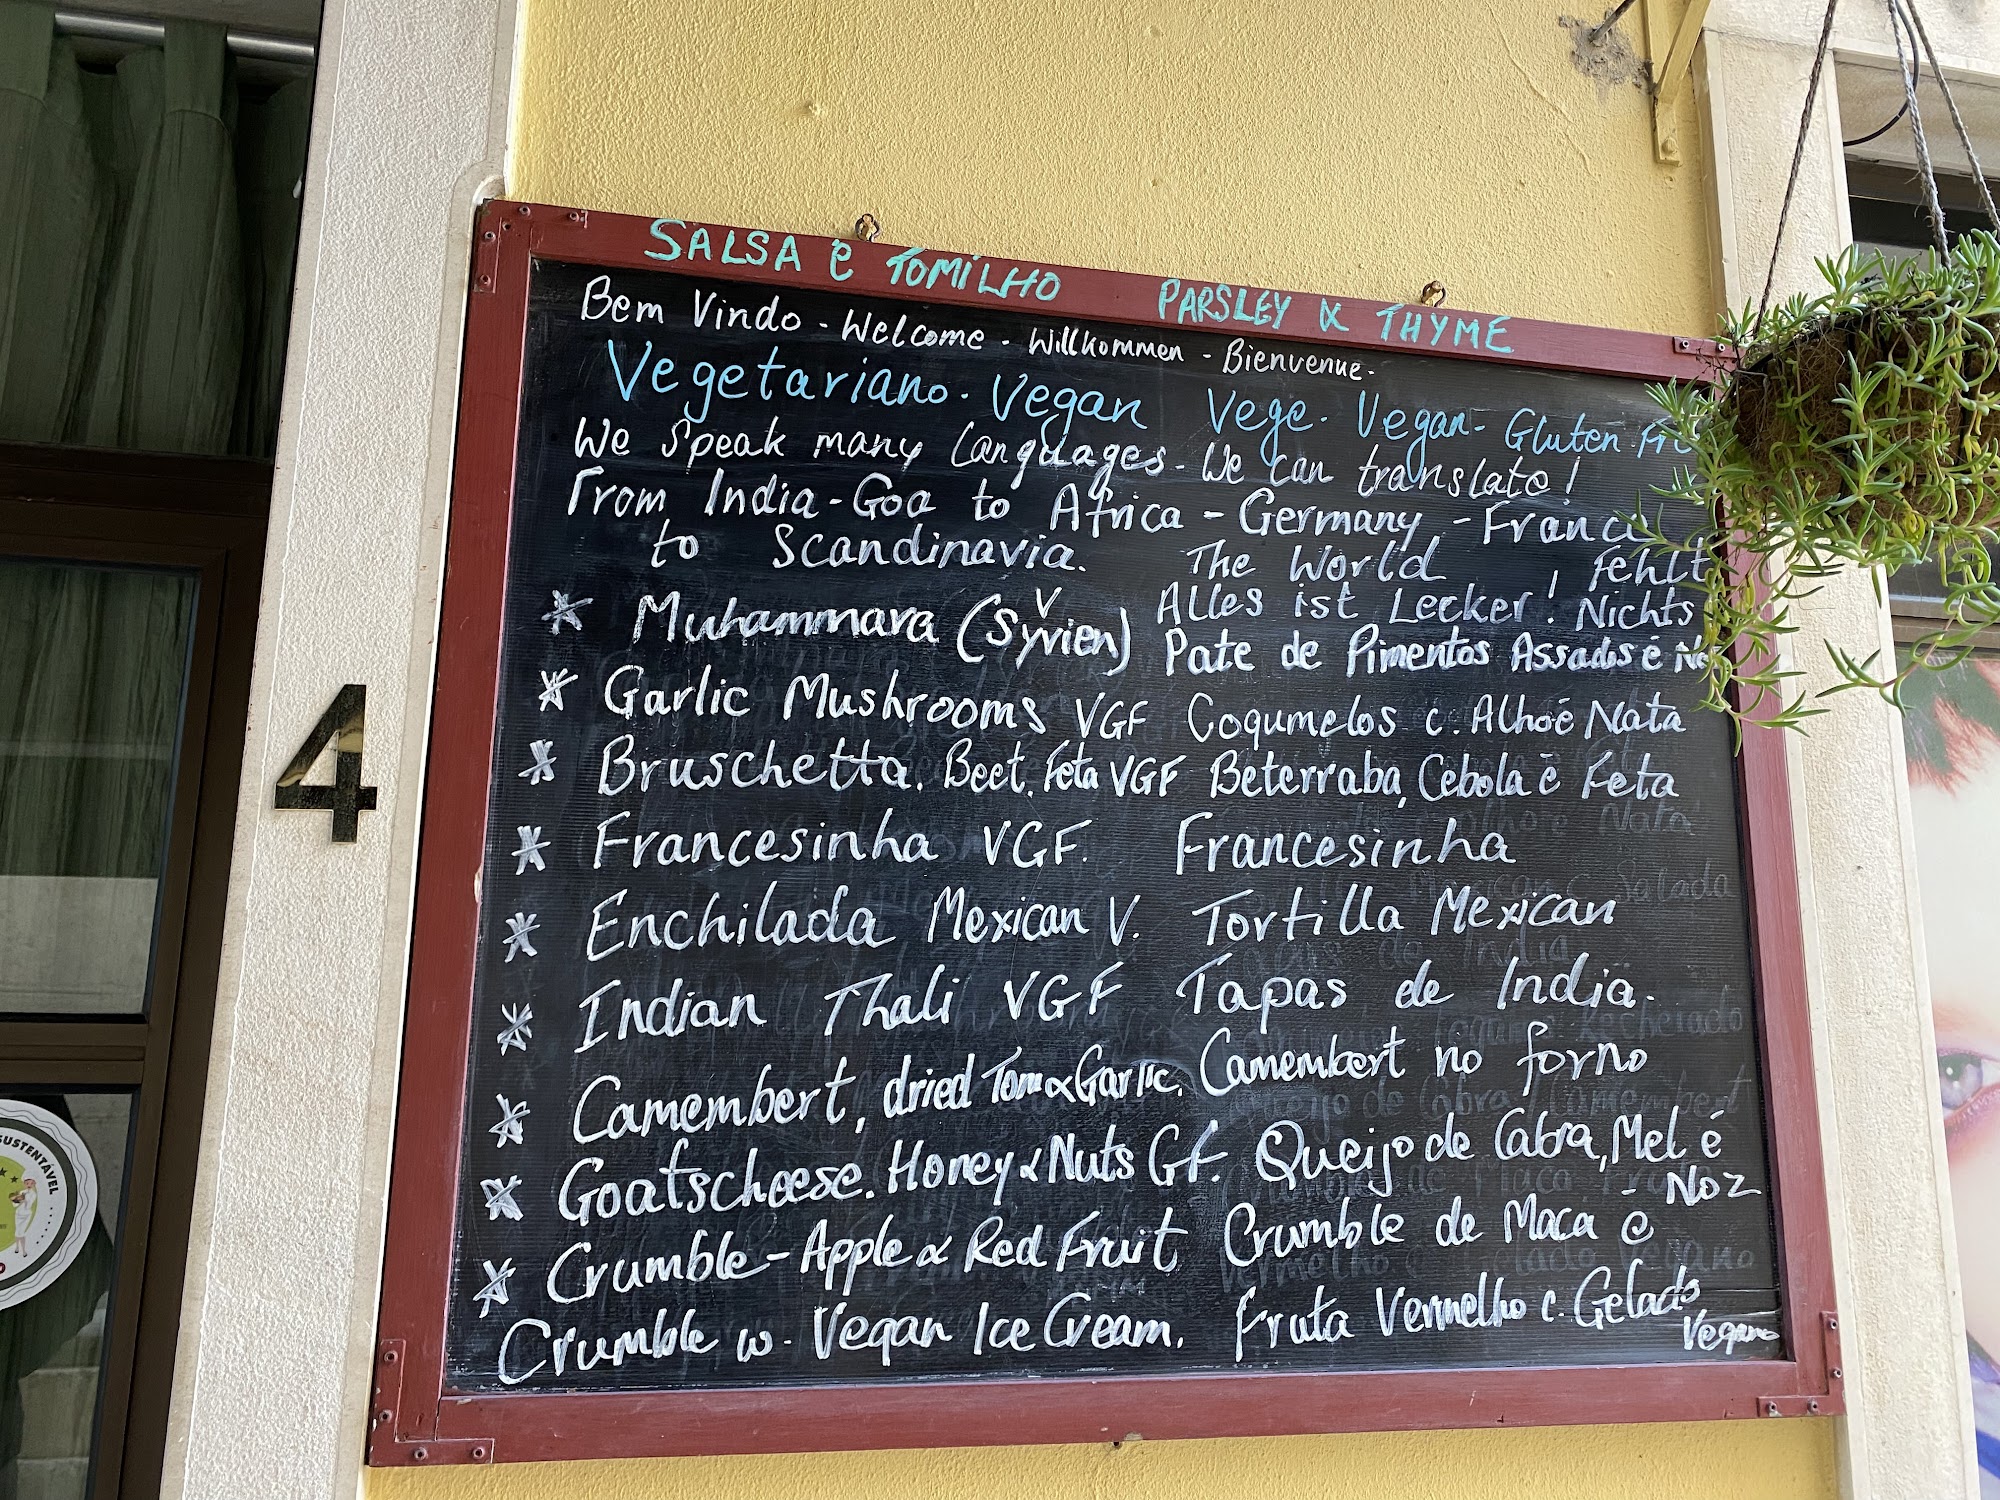 SALSA e TOMILHO PARSLEY & THYME
Bem Vindo - Welcome - Willkommen - Bienvenue -
Vegetariano. Vegan Vege. Vegan - Gluten
We Speak many Languages - We can translate!
From India - Goa to Africa - Germany - Franc
to Scandinavia. The World fehlt
* Muhammara (Syrien) V Alles ist Lecker! Nichts
Pate de Pimentos Assados é
* Garlic Mushrooms VGF Coqumelos c. Alho é Nata
* Bruschetta. Beet. Feta VGF Beterraba, Cebola é Feta
* Francesinha VGF. Francesinha
* Enchilada Mexican V. Tortilla Mexican
* Indian Thali VGF Tapas de India.
* Camembert, dried Tom & Garlic. Camembert no forno
* Goatscheese. Honey & Nuts GF. Queijo de Cabra, Mel é
- Noz
* Crumble - Apple & Red Fruit Crumble de Maca e
Crumble w. Vegan Ice Cream. Fruta Vermelho c. Gelado
Vegano
4
SUSTENTÁVEL